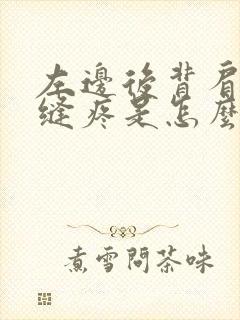 左邊後背肩
縫疼是怎麼
煮雪問茶味